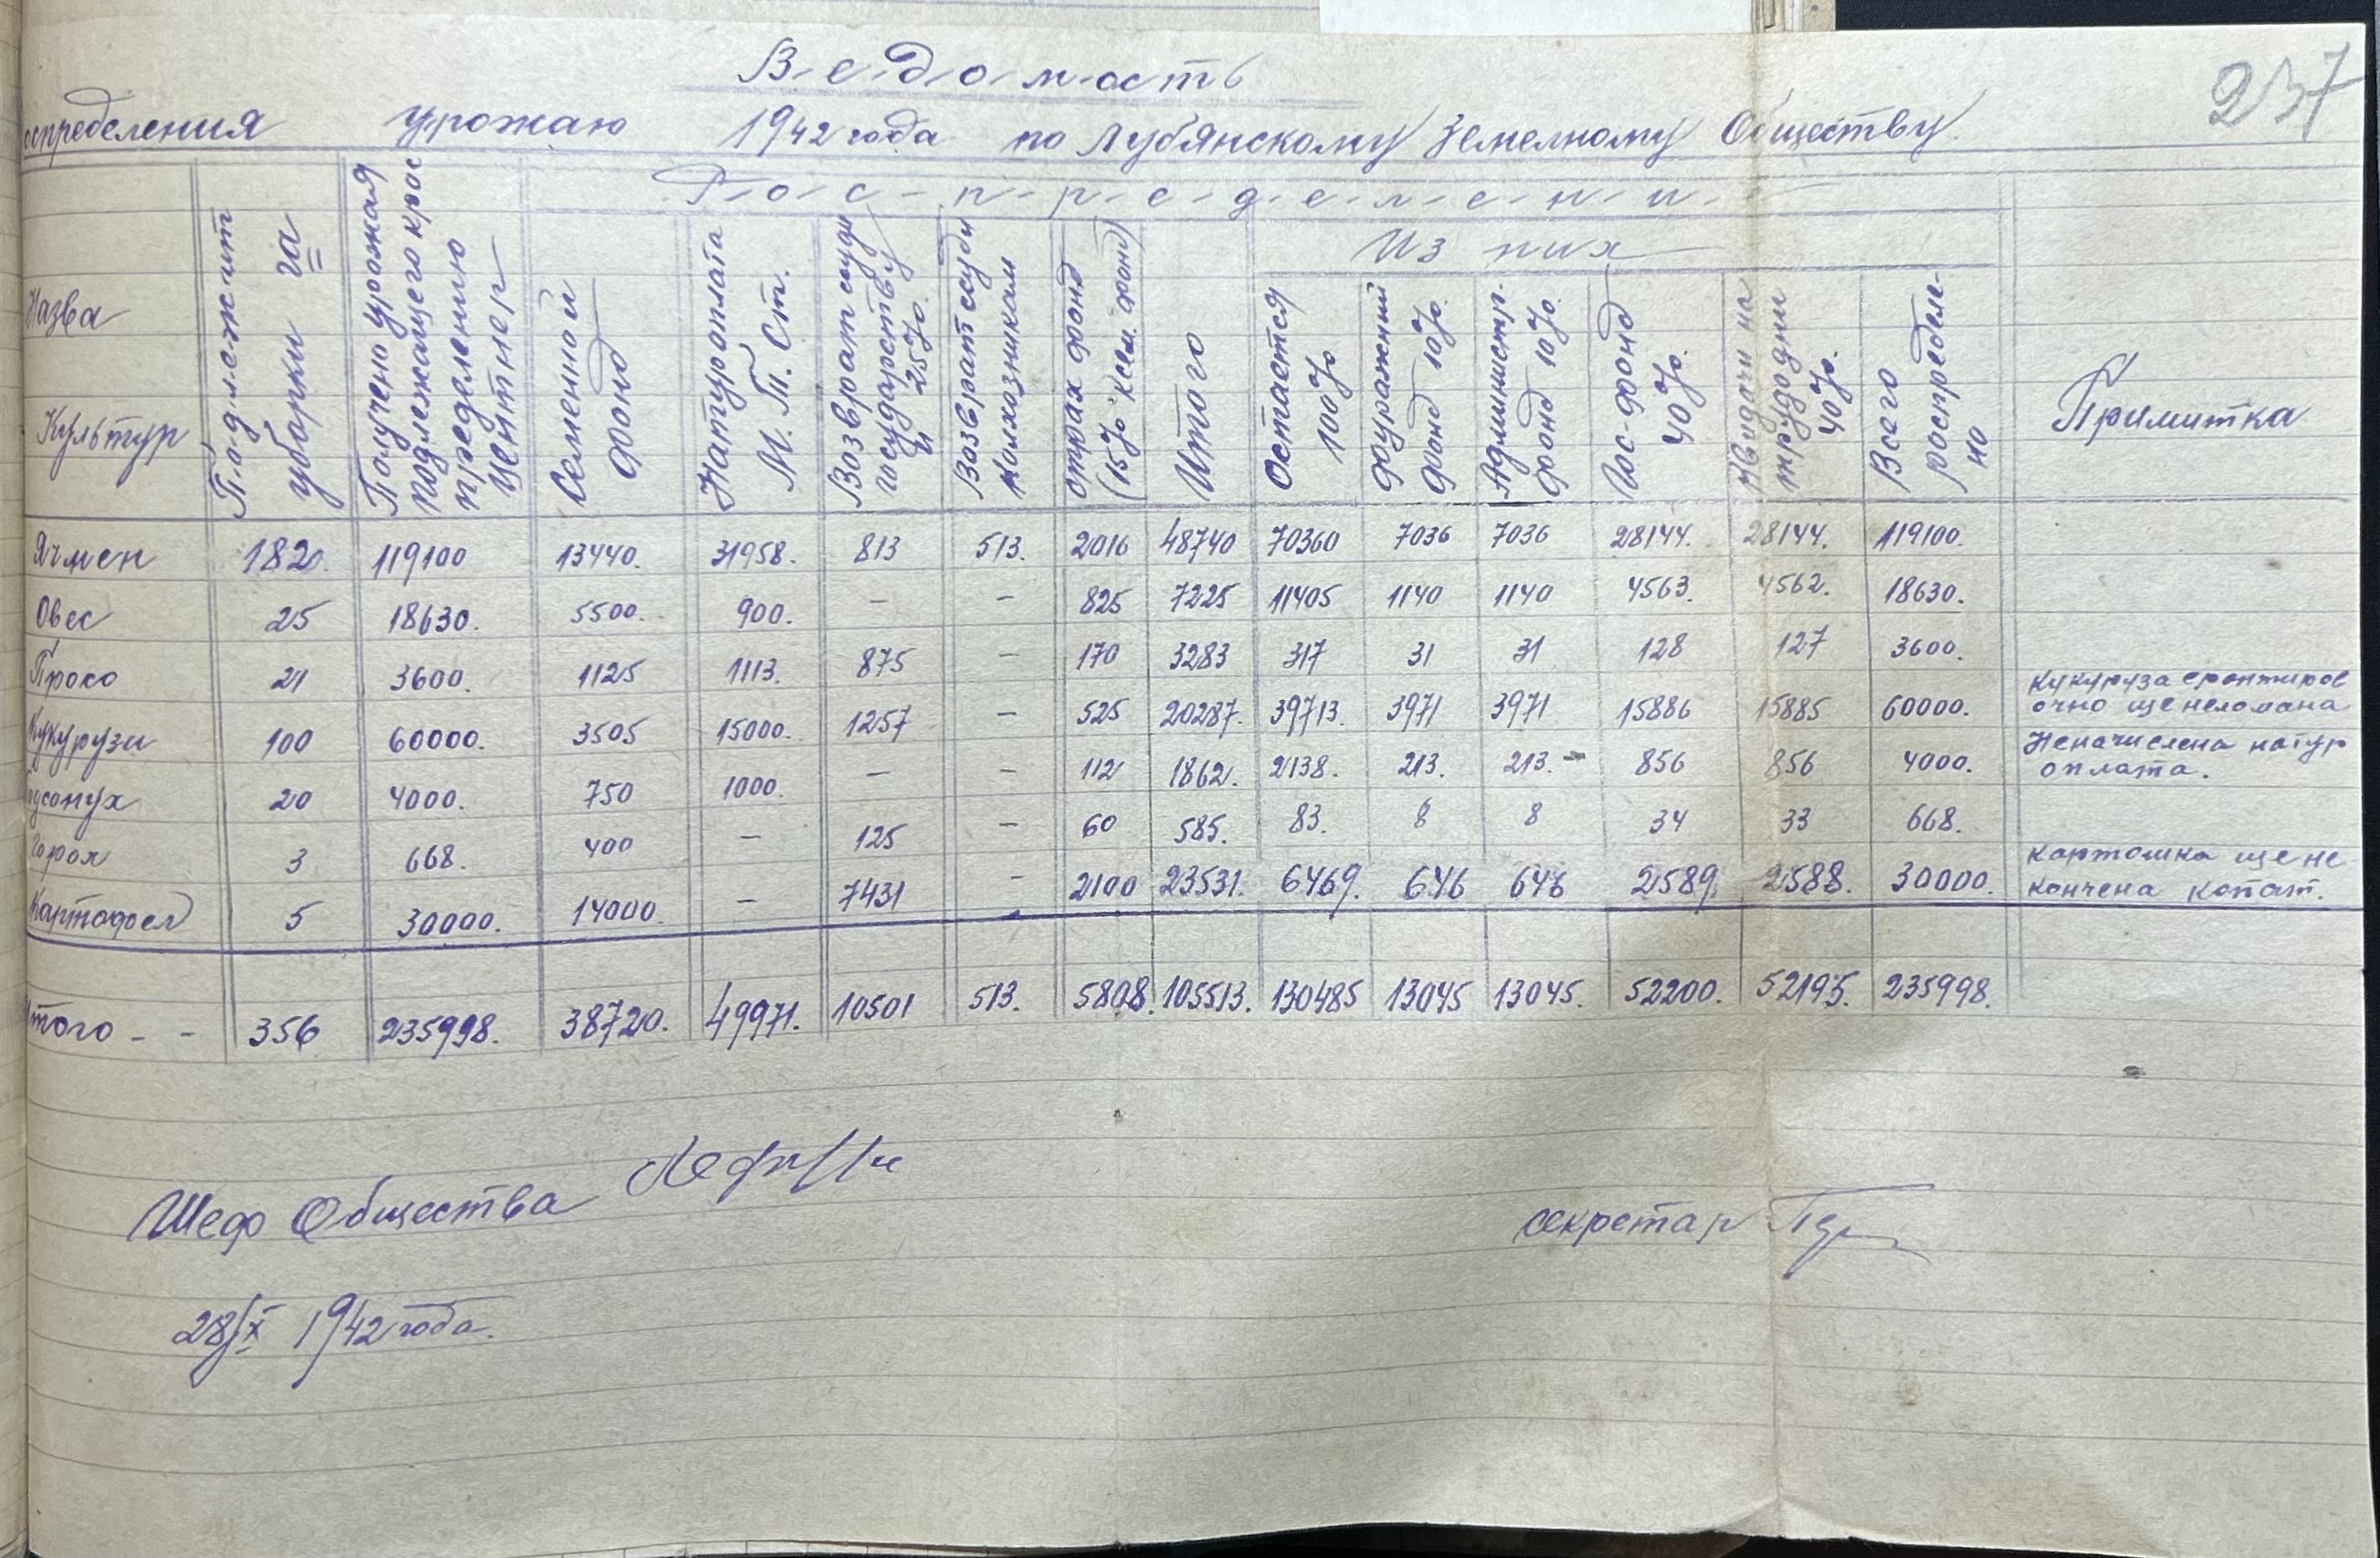 237
В-е-д-о-м-ость
оспределения урожаю 1942 года по Лубянскому Земелному Обществу.
Р-о-с-п-р-е-д-е-л-е-н-и-
Из них
Назва Культур
П-о-д-л-е-ж-ит уборки га
Получено урожая подлежащего крос пределению центнер
Семенной фонд
Натуроплата М. Т. Ст.
Возврат ссуди государству и 25%.
Возврат ссуди колхозникам
страх фонд (15% ксем. фонд)
Итого
Остается 100%
фуражний фонд 10%.
Администр. фонд 10%.
Гос-фонд 40%.
К видачи на трудодни 40%.
Всего роспределе-но
Примитка
Ячмен 182. 119100 13440. 31958. 813 513. 2016 48740 70360 7036 7036 28144. 28144. 119100.
Овес 25 18630. 5500. 900. — — 825 7225 11405 1140 1140 4563. 4562. 18630.
Просо 21 3600. 1125 1113. 875 — 170 3283 317 31 31 128 127 3600.
Кукурузи 100 60000. 3505 15000. 1257 — 525 20287. 39713. 3971 3971 15886 15885 60000. кукуруза
очно ще неломана
одсонух 20 4000. 750 1000. — — 112 1862. 2138. 213. 213. 856 856 4000. Неначислена натур
оплата.
Горох 3 668. 400 — 125 — 60 585. 83. 8 8 34 33 668.
Картофел 5 30000. 14000. — 7431 — 2100 23531. 6469. 646 646 2589. 2588. 30000. картошка ще не
кончена копат.
того - - 356 235998. 38720. 49971. 10501 513. 5808. 105513. 130485 13045 13045. 52200. 52195. 235998.
Шеф Общества
секретар
28/X 1942 года.